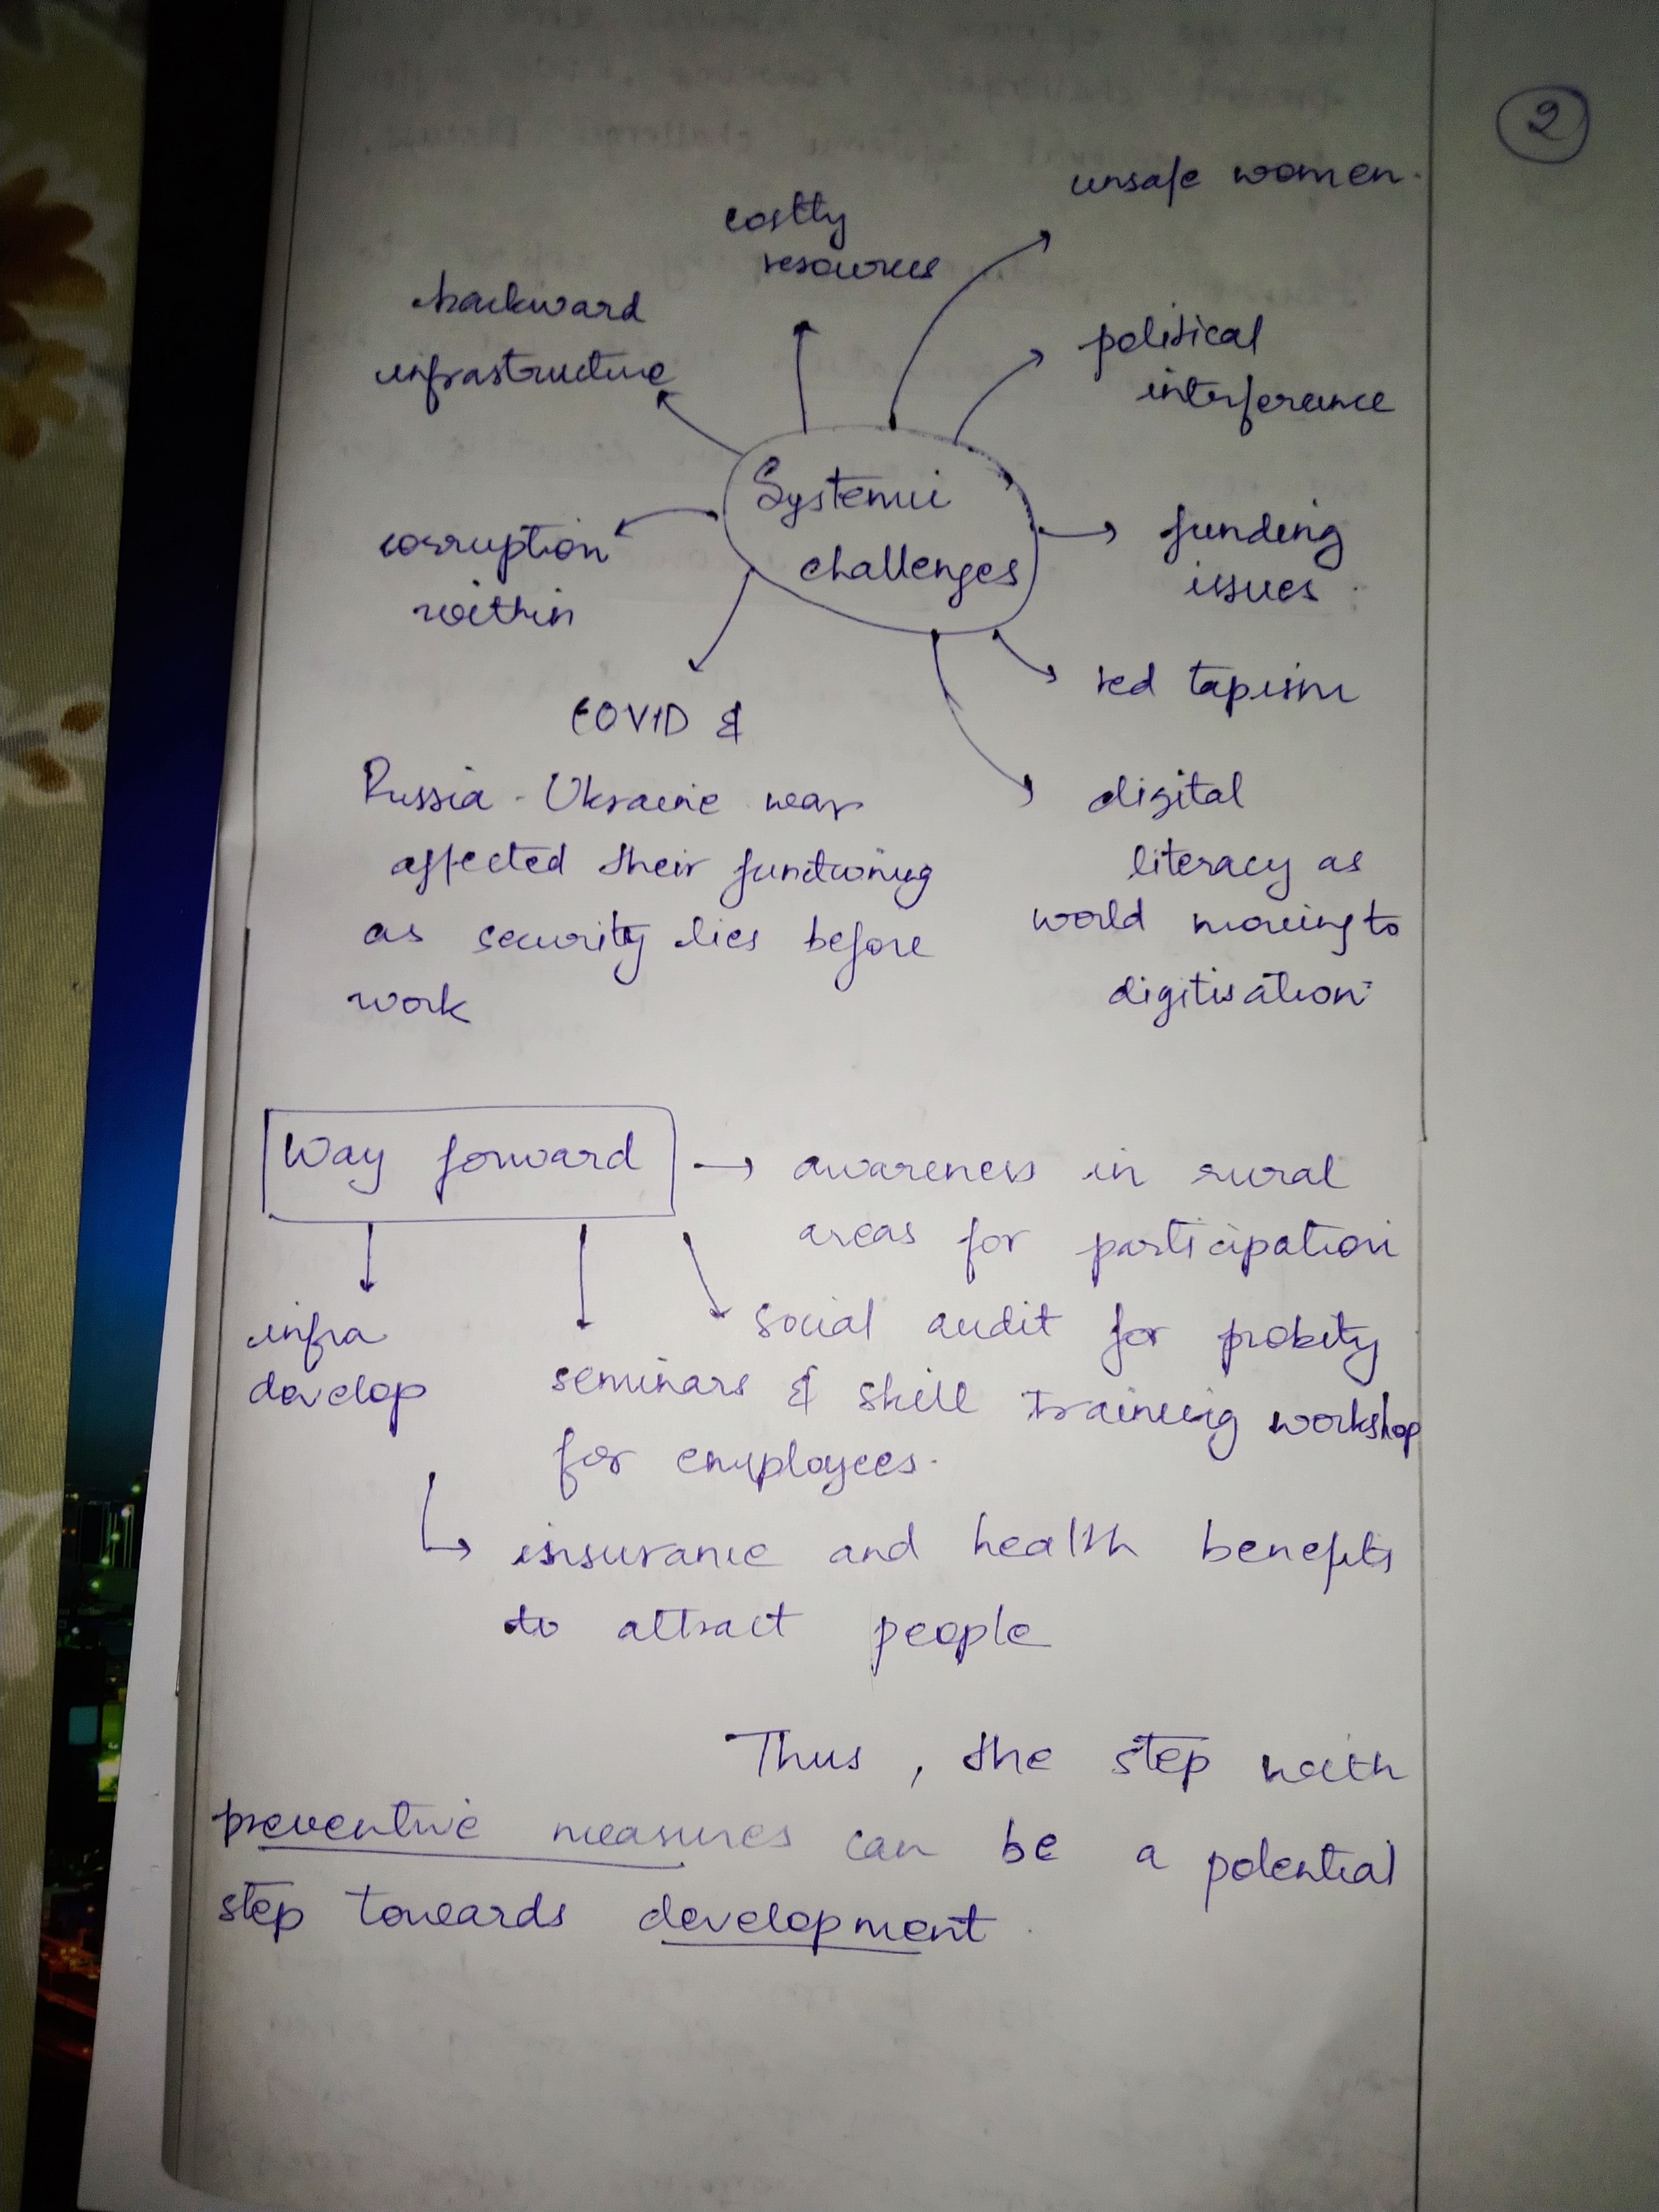 2
unsafe women.
costly
resources
backward
infrastructure
political
interference
Systemic
challenges
corruption
within
funding
issues
red tapism
COVID &
Russia - Ukraine war
affected their functioning
as security lies before
work
digital
literacy as
world moving to
digitisation
Way forward → awareness in rural
areas for participation
infra
develop
social audit for probity
seminars & skill training workshop
for employees.
insurance and health benefits
to attract people
Thus, the step with
preventive measures can be a potential
step towards development.